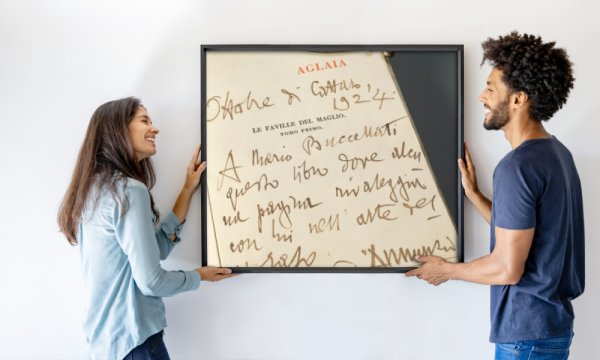 AGLAIA
Ottobre di
1924.
LE FAVILLE DEL MAGLIO.
TOMO PRIMO.
A Mario Buccellati
questo libro dove alcu
na pagina rivaleggia
con lui nell'arte del
Annunzio